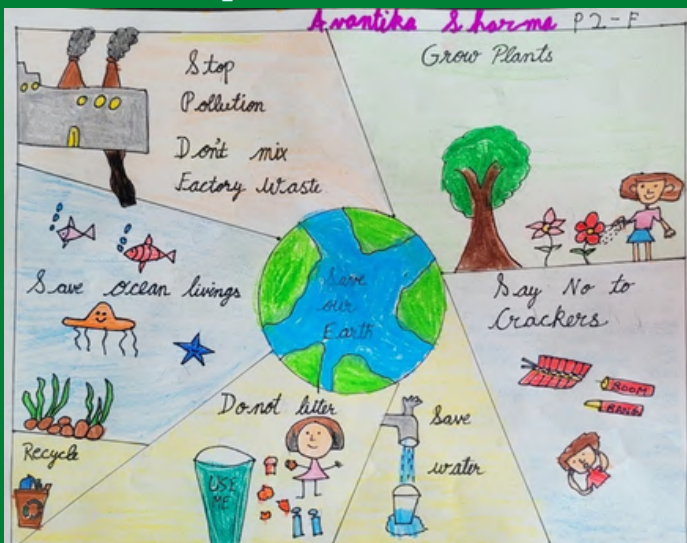 Avantika Sharma P2-F
Stop
Pollution
Don't mix
Factory Waste
Grow Plants
Save ocean livings
Save
our
Earth
Say No to
Crackers
BOOM
BANG
Recycle
Do not litter
USE
ME
Save
water